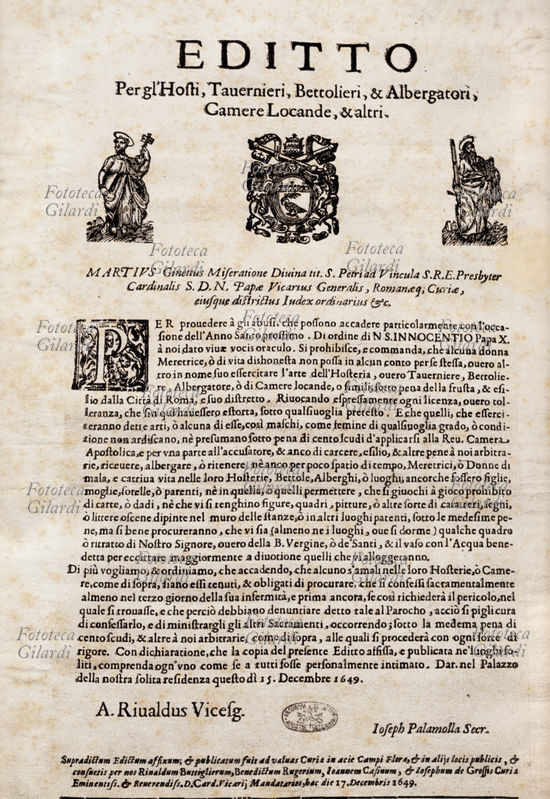 EDITTO
Per gl'Hosti, Tauernieri, Bettolieri, & Albergatori,
Camere Locande, & altri.
Fototeca Gilardi
MARTIVS Ginettus Miseratione Diuina tit. S. Petri ad Vincula S.R.E. Presbyter
Cardinalis S. D. N. Papæ Vicarius Generalis, Romanæq; Curiæ,
eiusque districtus Iudex ordinarius &c.
PER prouedere à gli abusi, che possono accadere particolarmente con l'occa-
sione dell'Anno Santo prossimo. Di ordine di N S. INNOCENTIO Papa X.
à noi dato viuæ vocis oraculo. Si prohibisce, e commanda, che alcuna donna
Meretrice, ò di vita dishonesta non possa in alcun conto per se stessa, ouero al-
tro in nome suo essercitare l'arte dell'Hosteria, ouero Tauerniere, Bettolie-
re, Albergatore, ò di Camere locande, o simili, sotto pena della frusta, & esi-
lio dalla Città di Roma, e suo distretto. Riuocando espressamente ogni licenza, ouero tol-
leranza, che sin qui hauessero estorta, sotto qualsiuoglia pretesto. E che quelli, che esserci-
teranno dette arti, ò alcuna di esse, così maschi, come femine di qualsiuoglia grado, ò condi-
tione non ardiscano, nè presumano sotto pena di cento scudi d'applicarsi alla Reu. Camera
Apostolica, e per vna parte all'accusatore, & anco di carcere, esilio, & altre pene à noi arbitra-
rie, riceuere, albergare, ò ritenere, nè anco per poco spatio di tempo, Meretrici, ò Donne di
mala, e cattiua vita nelle loro Hosterie, Bettole, Alberghi, ò luoghi, ancorche fossero figlie,
moglie, sorelle, ò parenti, nè in quella, ò quelli permettere, che si giuochi à gioco prohibito
di carte, ò dadi, nè che vi si tenghino figure, quadri, pitture, ò altre sorte di caratteri, segni,
ò littere oscene dipinte nel muro delle stanze, ò in altri luoghi patenti, sotto le medesime pe-
ne, ma si bene procureranno, che vi sia (almeno ne i luoghi, oue si dorme) qualche quadro
ò ritratto di Nostro Signore, ouero della B. Vergine, ò de Santi, & il vaso con l'Acqua bene-
detta per eccitare maggiormente a diuotione quelli che vi alloggeranno.
Di più vogliamo, & ordiniamo, che accadendo, che alcuno s'amali nelle loro Hosterie, ò Came-
re, come di sopra, siano essi tenuti, & obligati di procurare, che si confessi sacramentalmente
almeno nel terzo giorno della sua infermità, e prima ancora, se così richiederà il pericolo, nel
quale si trouasse, e che perciò debbiano denuntiare detto tale al Parocho, acciò si pigli cura
di confessarlo, e di ministrargli gli altri Sacramenti, occorrendo; sotto la medema pena di
cento scudi, & altre à noi arbitrarie, come di sopra, alle quali si procederà con ogni sorte di
rigore. Con dichiaratione, che la copia del presente Editto affissa, e publicata ne' luoghi so-
liti, comprenda ogn'vno come se a tutti fosse personalmente intimato. Dat. nel Palazzo
della nostra solita residenza questo dì 15. Decembre 1649.
A. Riualdus Vicesg.
Ioseph Palamolla Secr.
Supradictum Edictum affixum, & publicatum fuit ad valuas Curiæ in acie Campi Floræ, & in alijs locis publicis, &
consuetis per nos Rinaldum Buttiglierum, Benedictum Rugerium, Ioannem Casinum, & Iosephum de Grossis Curiæ
Eminentiss. & Reuerendiss. D. Card. Vicarij Mandatarios, hac die 17. Decembris 1649.